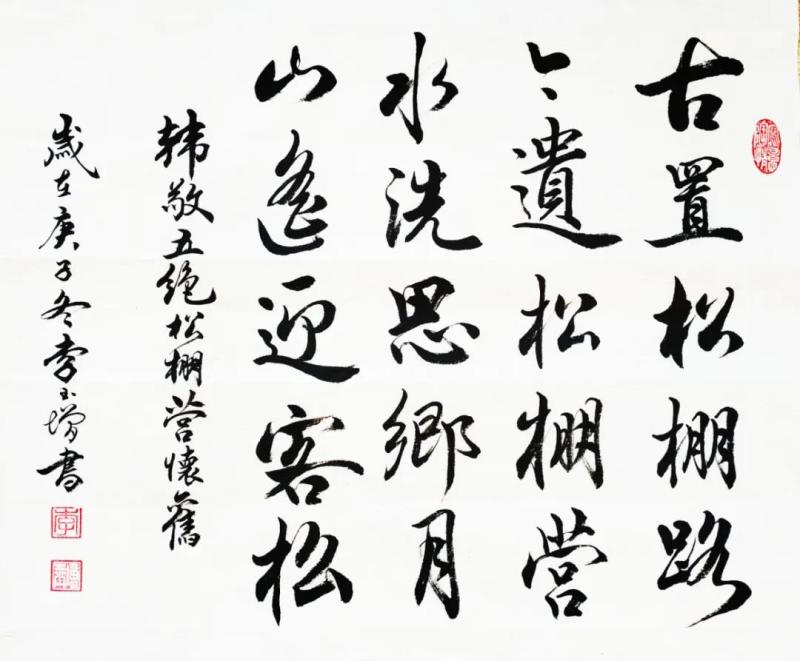 古置松棚路
今遺松棚營
水洗思鄉月
山遙迎客松
韩敬五绝松棚营懷舊
歲在庚子冬李玉增書
李